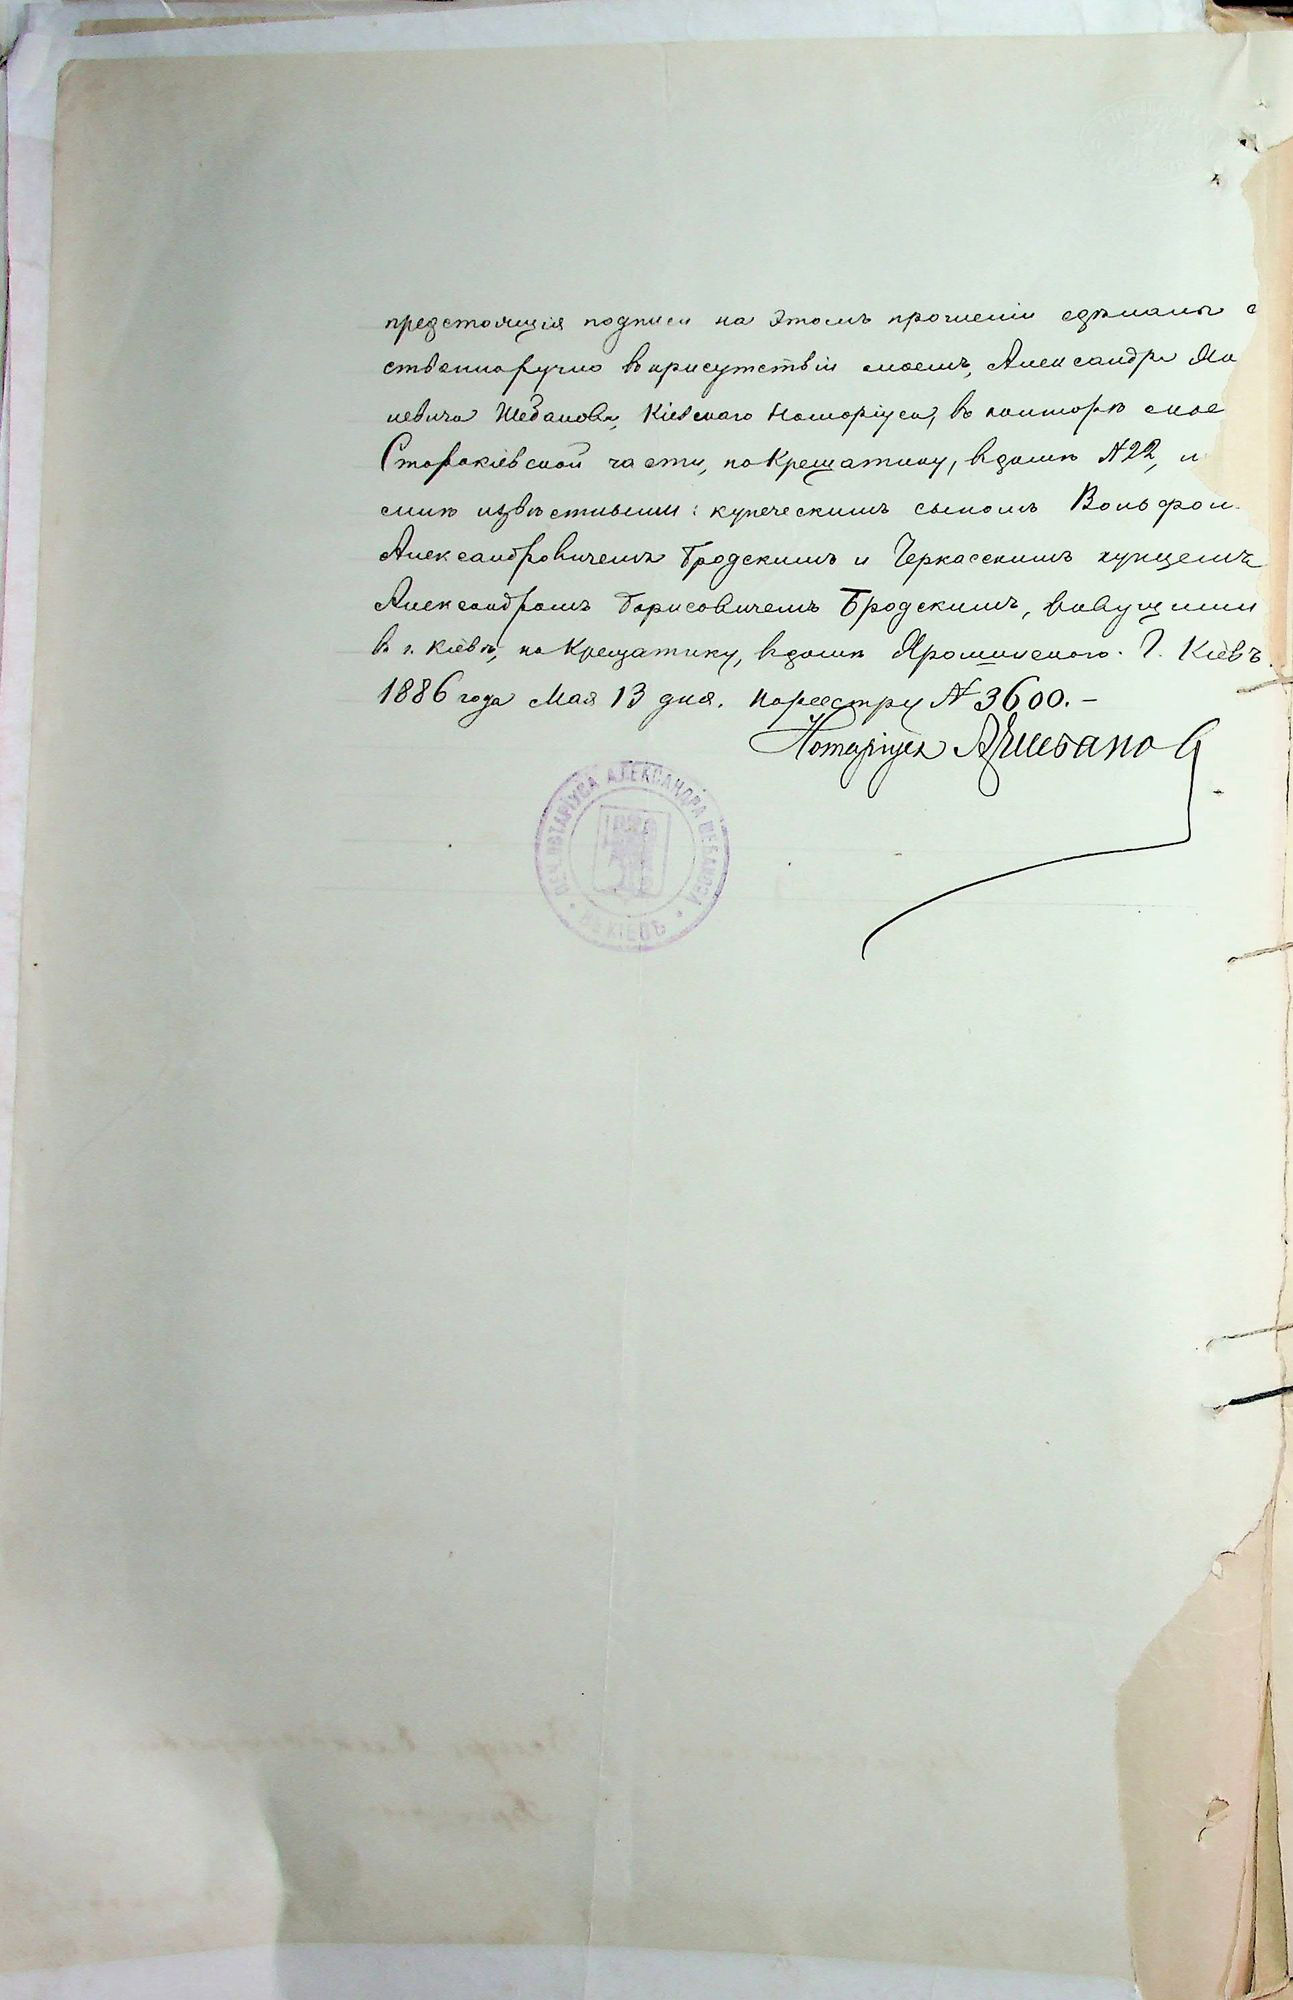 предстоящія подписи на этомъ прошеніи сдѣланы с
ственноручно въ присутствіи моемъ, Александра Яко
левича Шебанова, Кіевскаго Нотаріуса, въ конторѣ мое
Старокіевской части, по Крещатику, въ домѣ №22,
мнѣ извѣстными: купеческимъ сыномъ Вольфом
Александровичемъ Бродскимъ и Черкасскимъ купцемъ
Александромъ Борисовичемъ Бродскимъ, живущими
въ г. Кіевѣ, на Крещатику, въ домѣ Ярошинскаго. Г. Кіевъ.
1886 года Мая 13 дня. По реестру № 3600.—
Нотаріусъ А Шебановъ
ПЕЧ. НОТАРІУСА АЛЕКСАНДРА ШЕБАНОВА
ВЪ КІЕВѢ